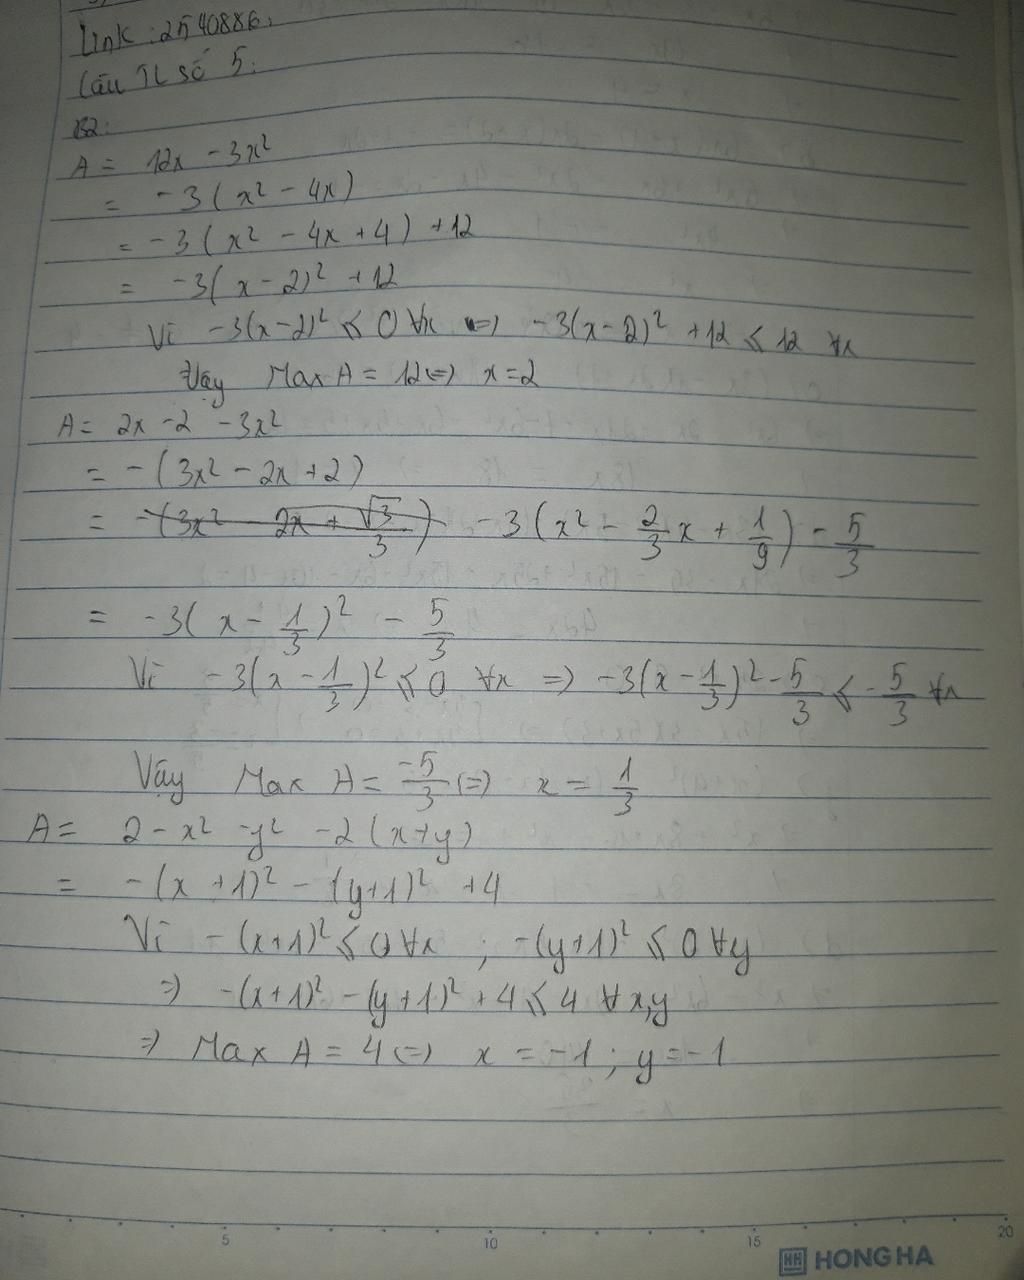 Link: 2540886.
Câu TL số 5:
B2:
A = 12x - 3x²
= -3(x² - 4x)
= -3(x² - 4x + 4) + 12
= -3(x - 2)² + 12
Vì -3(x-2)² ≤ 0 ∀x => -3(x-2)² + 12 ≤ 12 ∀x
Vậy Max A = 12 <=> x = 2
A = 2x - 2 - 3x²
= -(3x² - 2x + 2)
= -(3x² - 2x + √3/3) -3(x² - 2/3 x + 1/9) - 5/3
= -3(x - 1/3)² - 5/3
Vì -3(x - 1/3)² ≤ 0 ∀x => -3(x - 1/3)² - 5/3 ≤ -5/3 ∀x
Vậy Max A = -5/3 <=> x = 1/3
A = 2 - x² - y² - 2(x+y)
= -(x+1)² - (y+1)² + 4
Vì -(x+1)² ≤ 0 ∀x ; -(y+1)² ≤ 0 ∀y
=> -(x+1)² - (y+1)² + 4 ≤ 4 ∀x,y
=> Max A = 4 <=> x = -1 ; y = -1
5 10 15 20
HH HONG HA